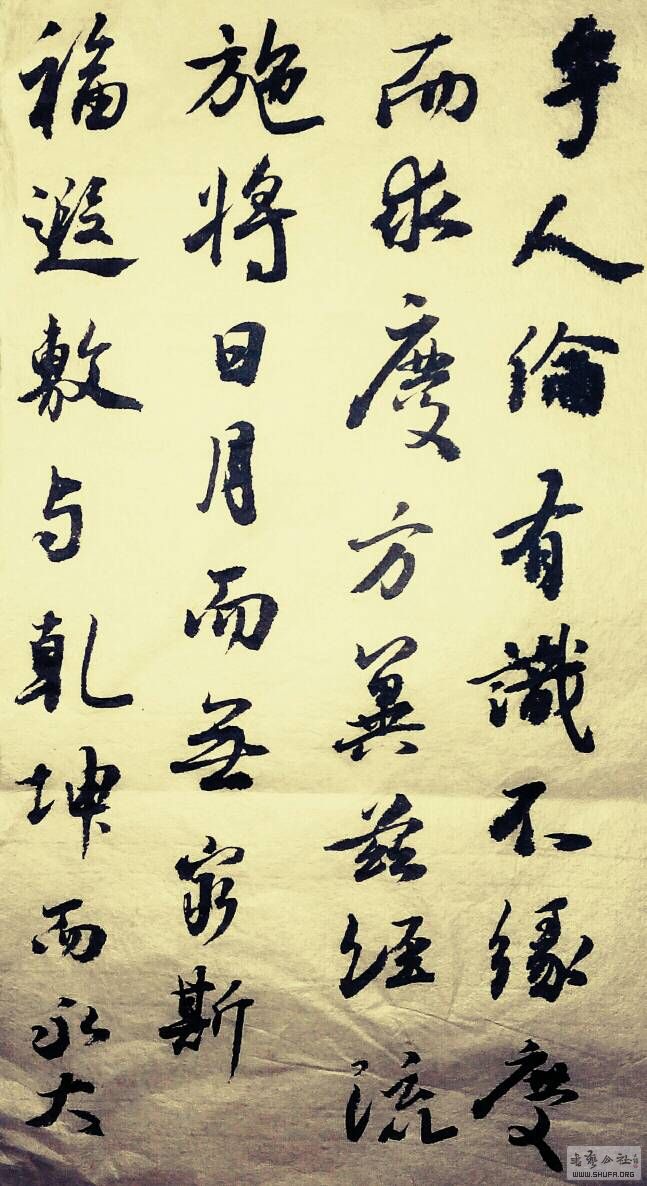 乎人倫有識不緣慶
而求慶方冀茲經流
施將日月而無窮斯
福遐敷与乾坤而永大
書藝公社
WWW.SHUFA.ORG